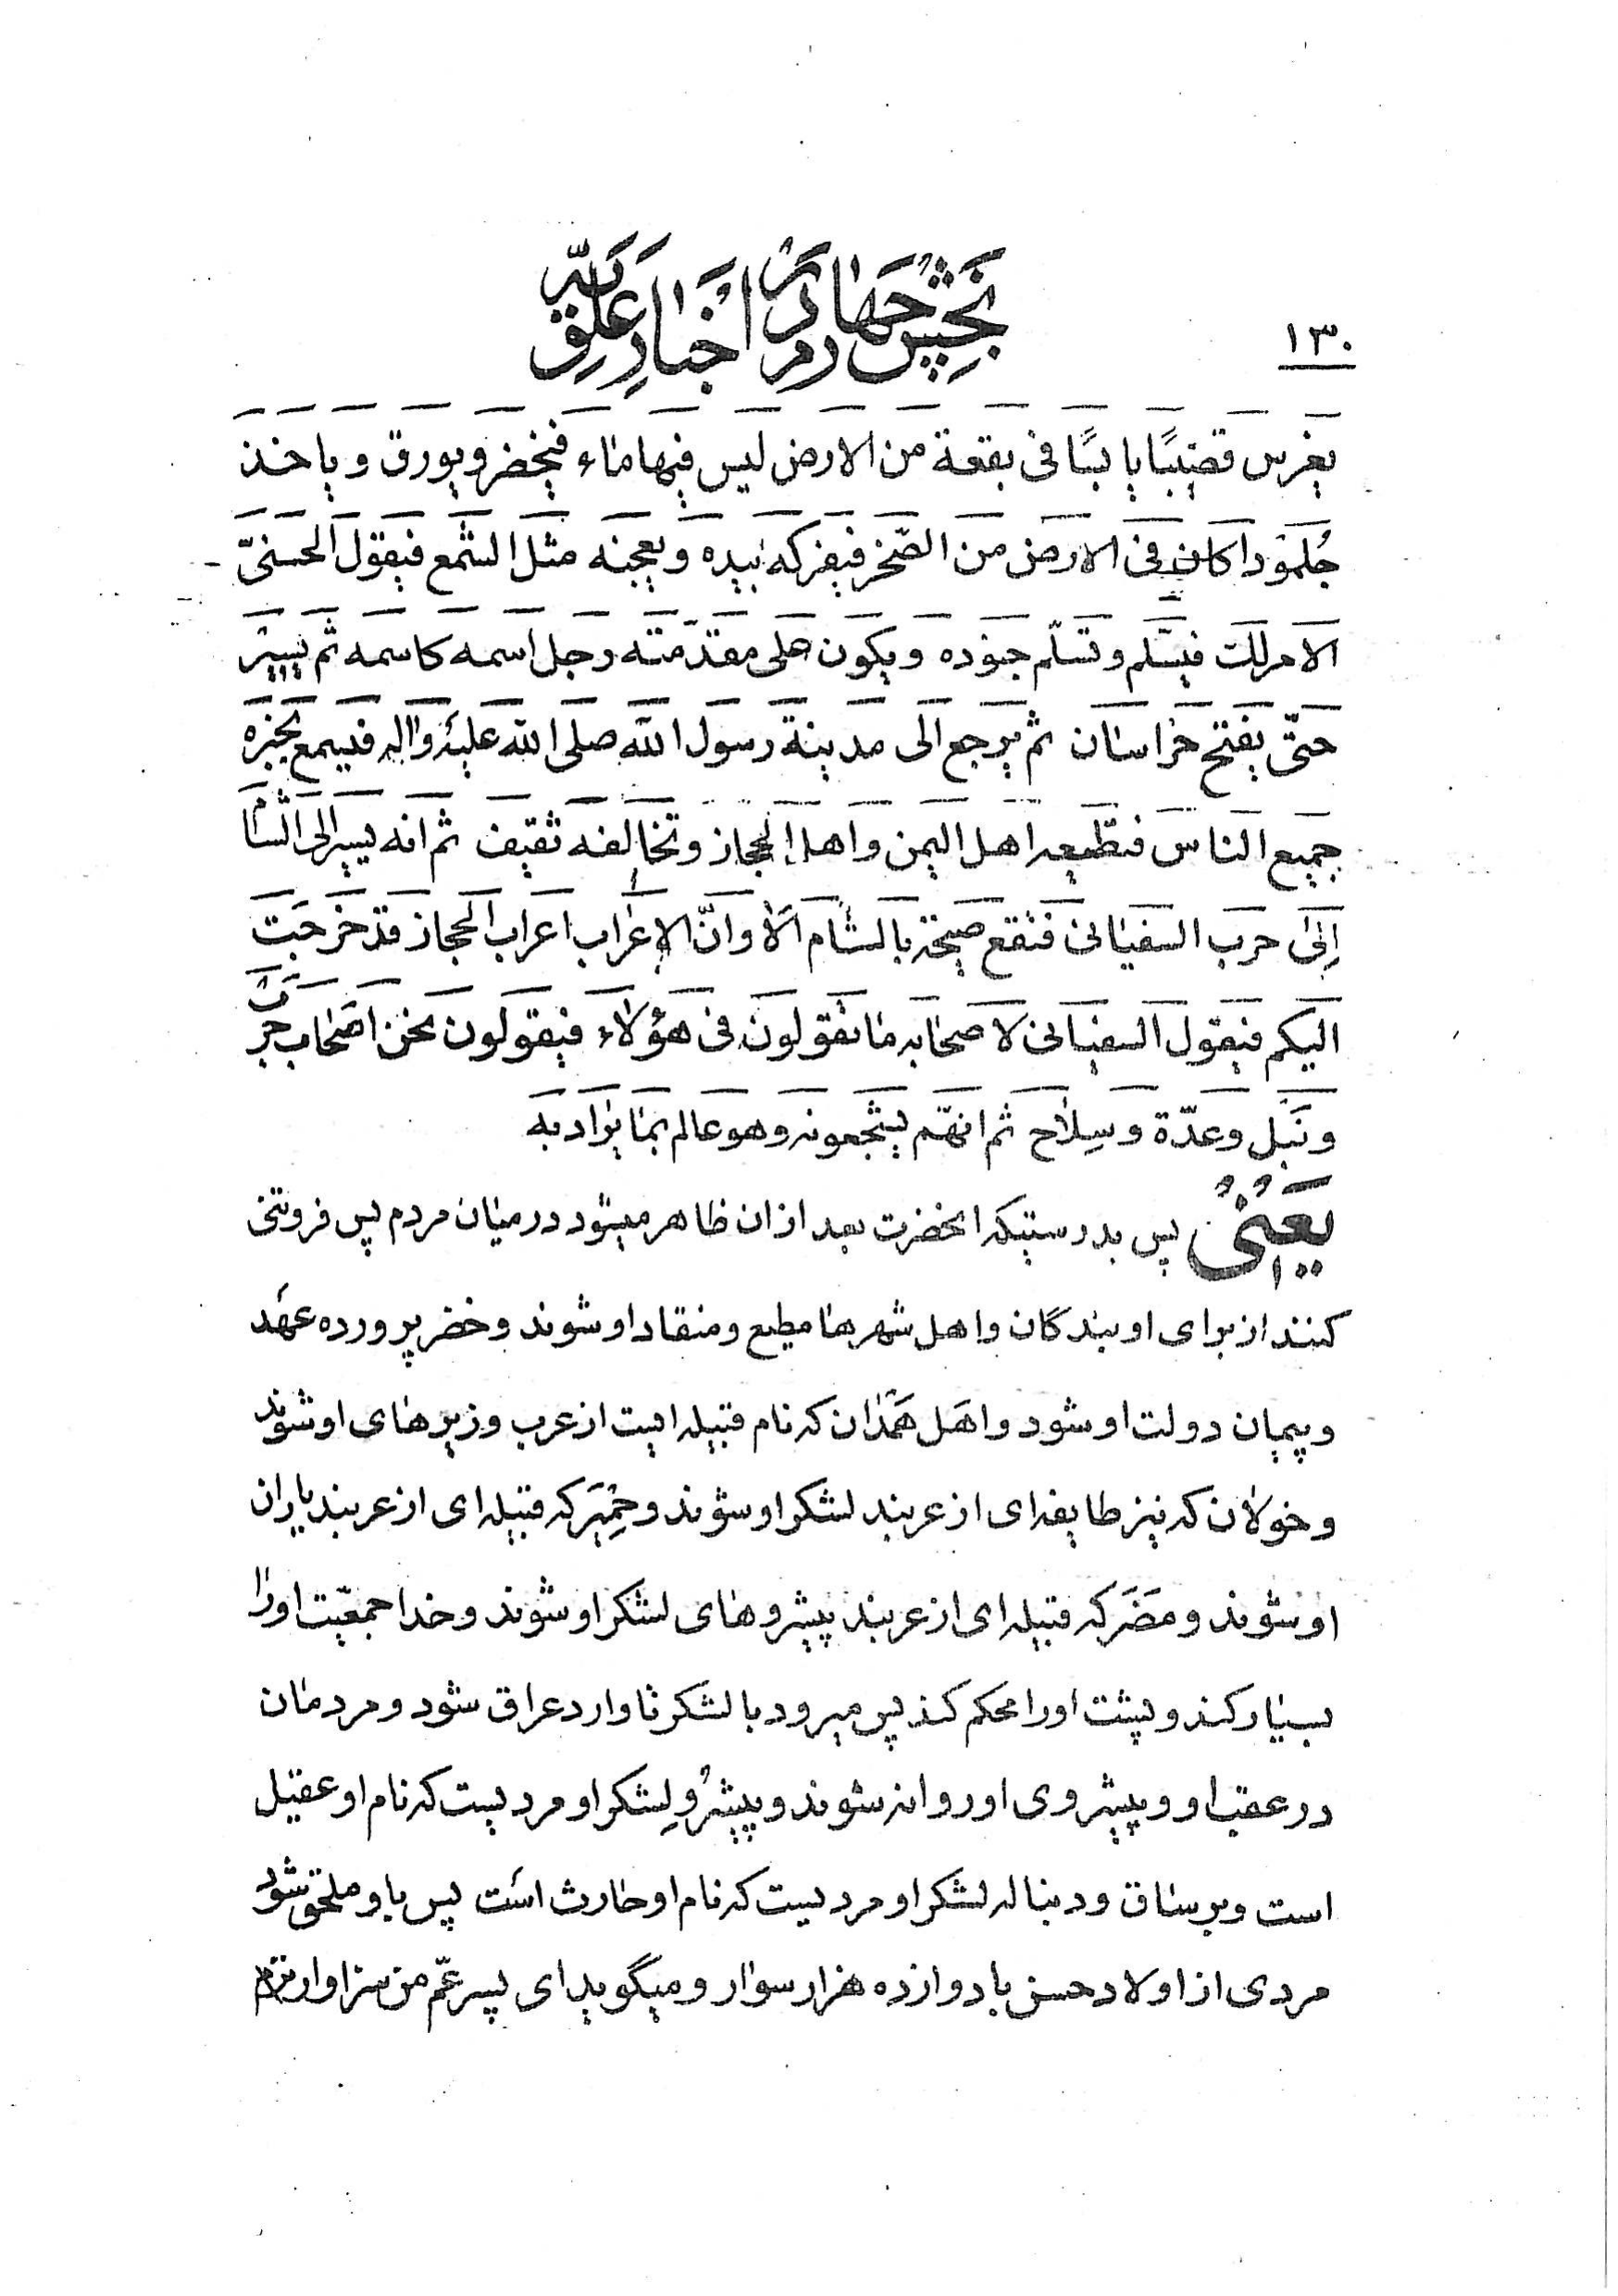 ۱۳۰
بخش چهارم در اخبار علویّه
یغرس قضیبًا یابسًا فی بقعة من الارض لیس فیها ماء فیخضر ویورق ویاخذ
جُلمودا کان فی الارض من الصّخر فیفرکه بیده ویعجنه مثل الشمع فیقول الحسنیّ
الامر لک فیسلم وتسلّم جنوده ویکون علی مقدّمته رجل اسمه کاسمه ثم یسیر
حتّی یفتح خراسان ثم یرجع الی مدینة رسول الله صلی الله علیه واله فیسمع بخبره
جمیع الناس فتطیعه اهل الیمن واهل الحجاز وتخالفه ثقیف ثم انه یسیر الی الشا
اِلیٰ حرب السفیانی فتقع صیحة بالشام الا وانّ الاعراب اعراب الحجاز قد خرجت
الیکم فیقول السفیانی لاصحابه ما تقولون فی هؤلاء فیقولون نحن اصحاب حرب
ونبل وعدّة وسِلاح ثم انهم یشجعونه وهو عالم بما یراد به
یعنی پس بدرستیکه انحضرت بعد ازان ظاهر میشود در میان مردم پس فروتنی
کنند از برای او بندگان واهل شهرها مطیع ومنقاد او شوند وخضر پرورده عهد
وپیمان دولت او شود واهل همدان که نام قبیله ایست از عرب وزیرهای او شوند
وخولان که نیز طایفه ای از عربند لشکر او شوند وحِمْیَر که قبیله ای از عربند یاران
او شوند ومضَر که قبیله ای از عربند پیشروهای لشکر او شوند وخدا جمعیّت اورا
بسیار کند وپشت اورا محکم کند پس میرود با لشکر تا وارد عراق شود ومردمان
در عقب او وپیشروی او روانه شوند وپیشرُو لِشکر او مردیست که نام او عقیل
است وبر ساق ودنباله لشکر او مردیست که نام او حارث است پس باو ملحق شود
مردی از اولاد حسن با دوازده هزار سوار ومیگوید ای پسر عمّ من سزاوارترم